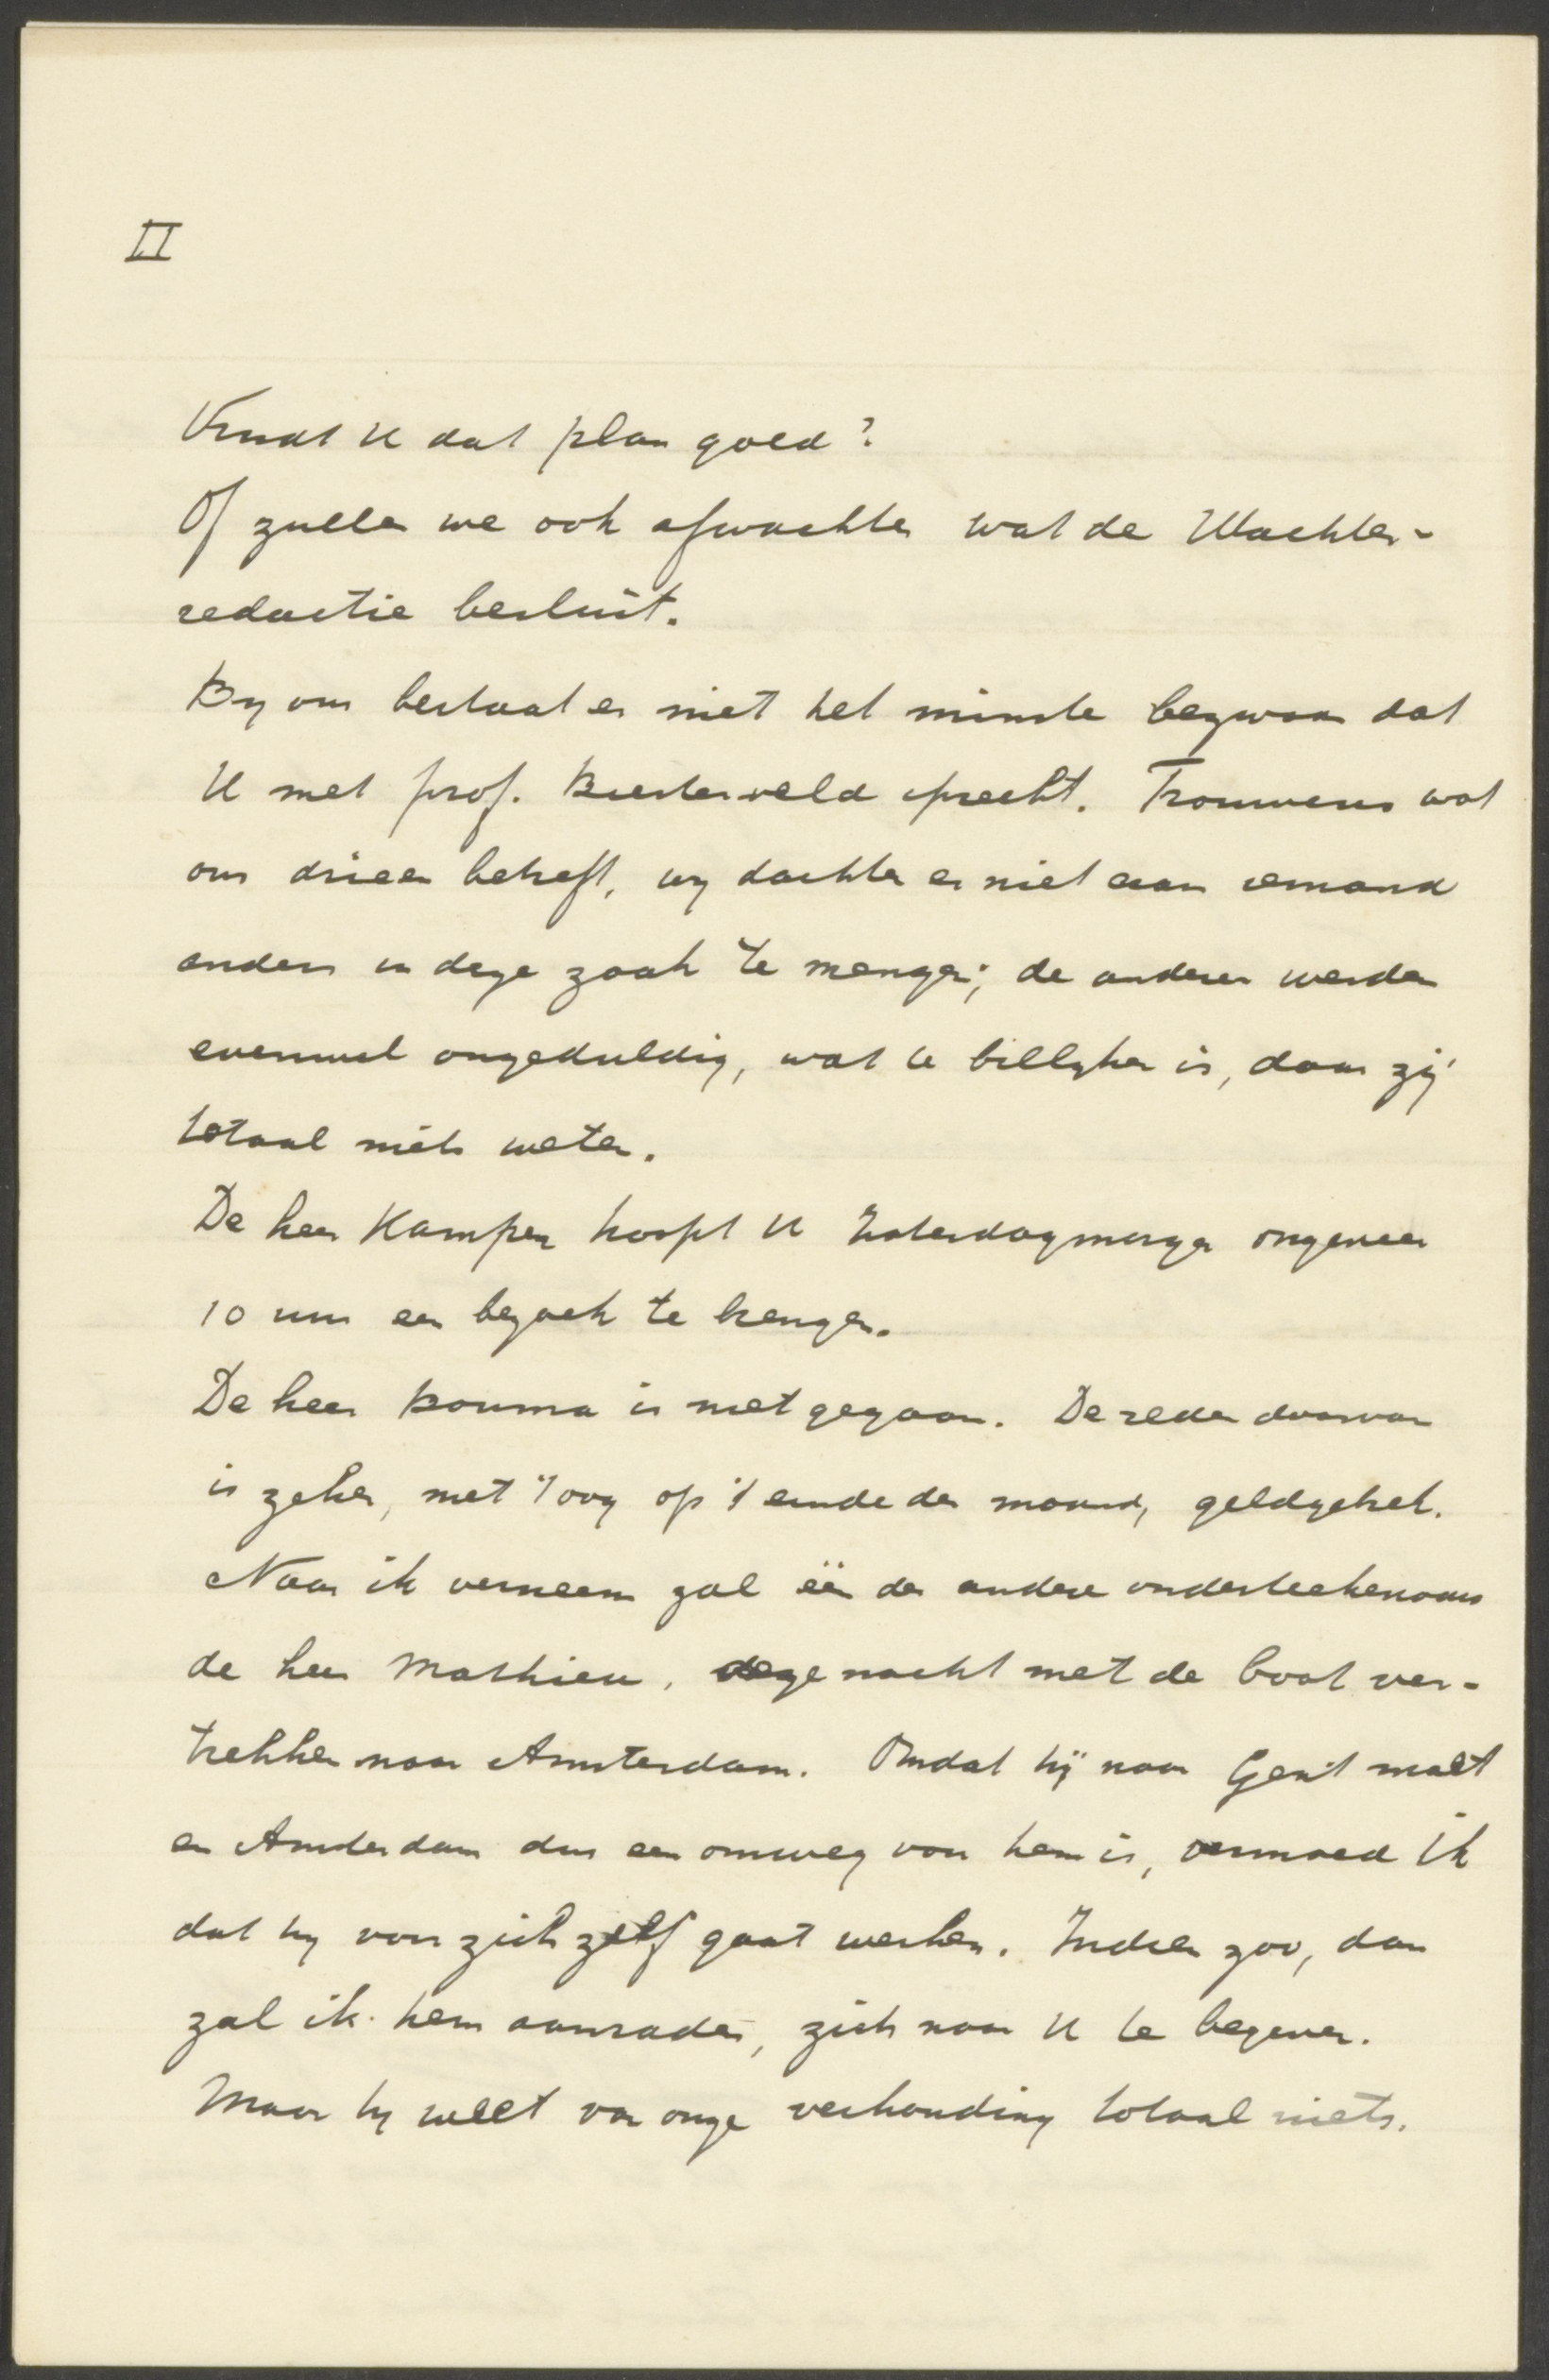 II
Vindt U dat plan goed?
Of zullen we ook afwachten wat de Wachter-
redactie besluit.
By ons bestaat er niet het minste bezwaar dat
U met prof. Biesterveld spreekt. Trouwens wat
ons drieën betreft, wy dachten er niet aan iemand
anders in deze zaak te mengen; de anderen werden
evenwel ongeduldig, wat te billyken is, daar zij
totaal niets weten.
De heer Kampen hoopt U Zaterdagmorgen ongeveer
10 uur een bezoek te brengen.
De heer Bouma is niet gegaan. De reden daarvan
is zeker, met 't oog op 't einde der maand, geldgebrek.
Naar ik verneem zal één der andere onderteekenaars
de heer Mathieu, deze nacht met de boot ver-
trekken naar Amsterdam. Omdat hij naar Gent moet
en Amsterdam dus een omweg voor hem is, vermoed ik
dat hy voor zich zelf gaat werken. Indien zoo, dan
zal ik hem aanraden, zich naar U te begeven.
Maar hy weet van onze verhouding totaal niets.